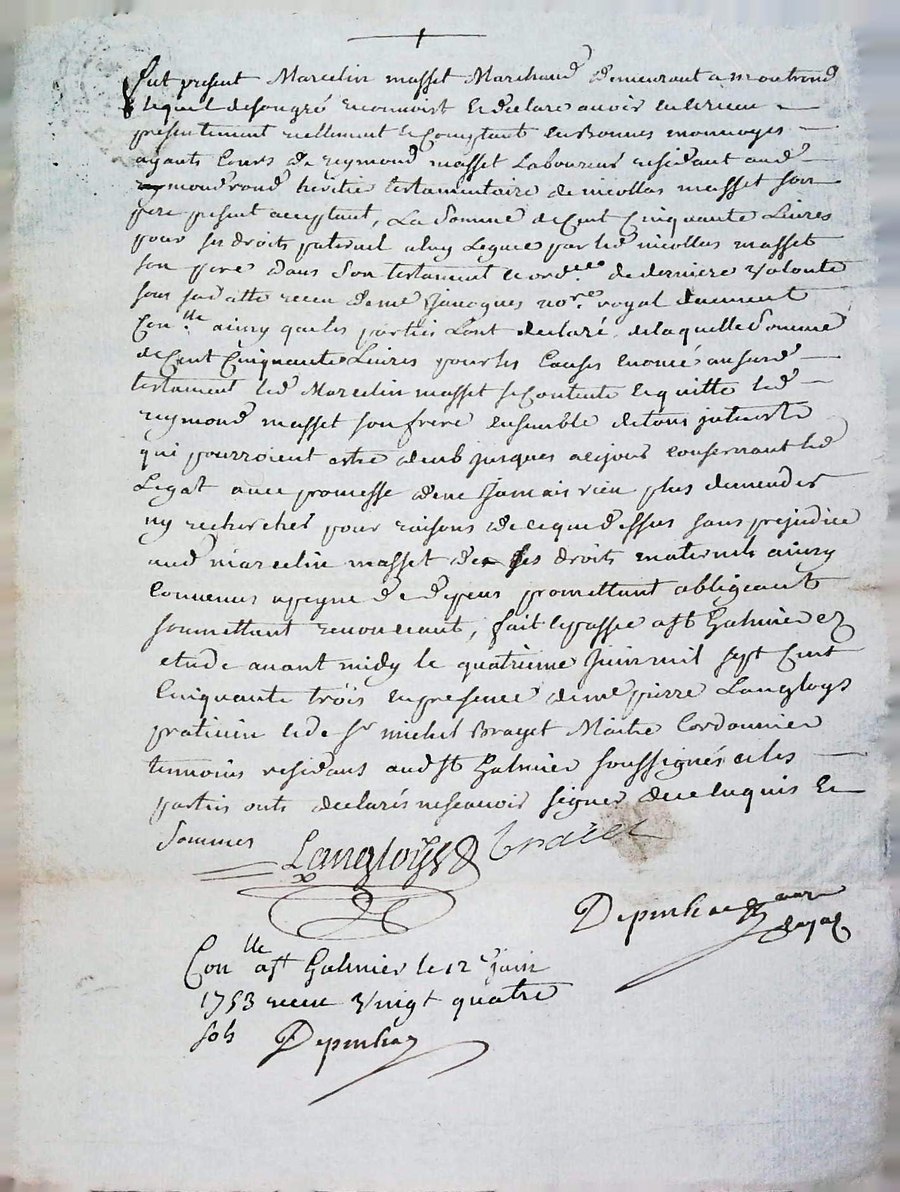 fut present Marcelin masset Marchand demeurant a montrond
lequel desongré reconnoist et declare avoir eu et receu
presentement reellement et Comptant en Bonnes monnoyes
ayants Cours de reymond masset Laboureur residant aud
mondrond héritié testamentaire de nicollas masset son
pere present acceptant, La Somme de Cent Cinquante Livres
pour ses droits paternel a luy Legués par led nicollas masset
son pere dans Son testament de derniere volonté
sous sad datte receu de me Jacques no.re royal duement
Con.lle ainsy que les parties L'ont declaré, de laquelle Somme
de Cent Cinquante Livres pour les Causes enoncé ausurd
testament led Marcelin masset se Contente et quitte led
reymond masset son frere ensemble de tous interests
qui pourroient estre deub jusques a ce jour Consernant led
Legat avec promesse de ne Jamais rien plus demender
ny rechercher pour raisons de ce que dessus sans prejudice
aud marcelin masset de ses droits maternels ainsy
Convenus a peyne de depens promettant obligeant
soumettant renonceant, fait et passé a st Galmier ez
etude avant midy le quatrieme Juin mil sept Cent
Cinquante trois en presence de me pierre Langloys
praticien et de Sr michel Brayet Maitre Cordonnier
temoins residans aud st Galmier soussignés et les
parties onts declarés ne scavoir signer de ce enquis et
Sommes
Langloys Braiet
Depinhac no.re royal
Con.lle a st Galmier le 12e juin
1753 receu vingt quatre
sols Depinhac